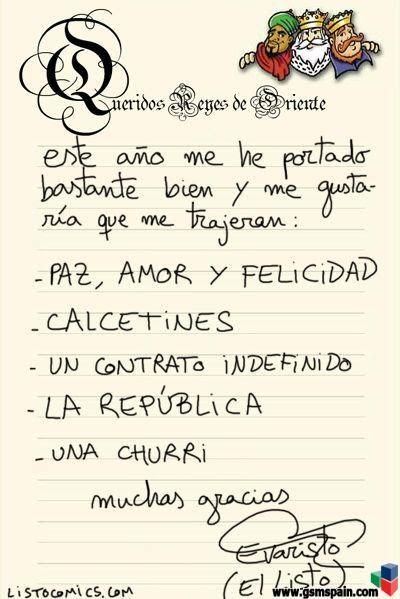 Queridos Reyes de Oriente
este año me he portado
bastante bien y me gusta-
ría que me trajeran:
- PAZ, AMOR Y FELICIDAD
- CALCETINES
- UN CONTRATO INDEFINIDO
- LA REPÚBLICA
- UNA CHURRI
muchas gracias
Evaristo
(El Listo)
LISTOCOMICS.COM
www.gsmspain.com